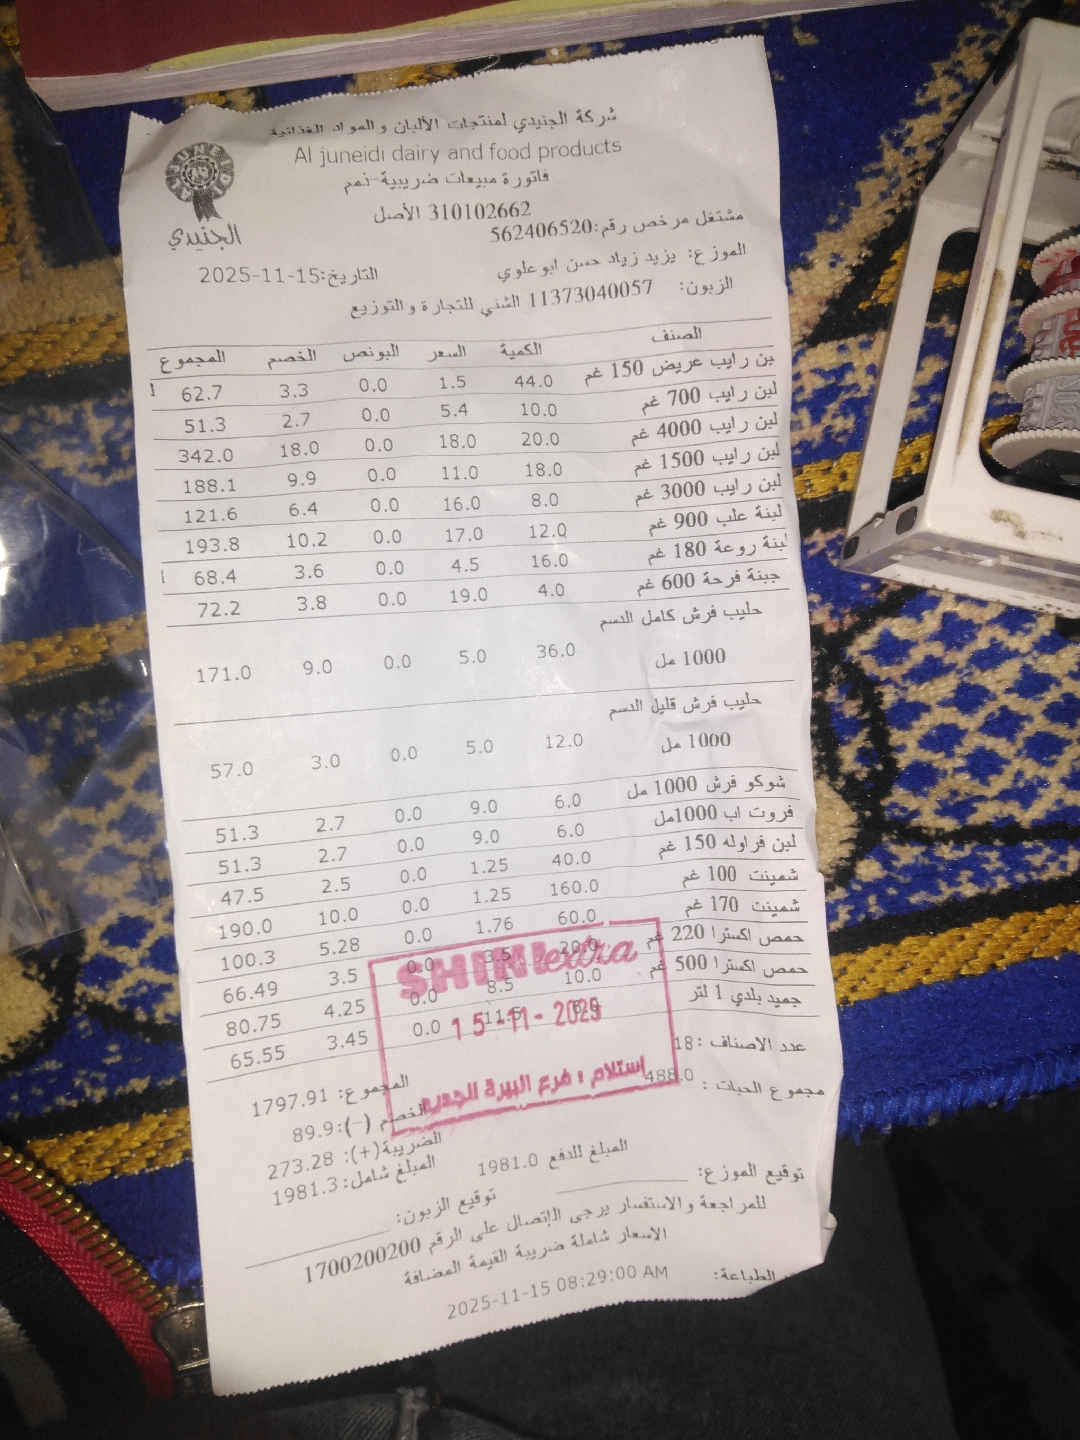 شركة الجنيدي لمنتجات الألبان والمواد الغذائية
Al juneidi dairy and food products
الجنيدي
فاتورة مبيعات ضريبية-ذمم
310102662 الأصل
مشتغل مرخص رقم:562406520
التاريخ:2025-11-15
الموزع: يزيد زياد حسن ابوعلوي
الزبون: 11373040057 الشني للتجارة والتوزيع
الصنف الكمية السعر البونص الخصم المجموع
بن رايب عريض 150 غم 44.0 1.5 0.0 3.3 62.7
لبن رايب 700 غم 10.0 5.4 0.0 2.7 51.3
لبن رايب 4000 غم 20.0 18.0 0.0 18.0 342.0
لبن رايب 1500 غم 18.0 11.0 0.0 9.9 188.1
لبن رايب 3000 غم 8.0 16.0 0.0 6.4 121.6
لبنة علب 900 غم 12.0 17.0 0.0 10.2 193.8
لبنة روعة 180 غم 16.0 4.5 0.0 3.6 68.4
جبنة فرحة 600 غم 4.0 19.0 0.0 3.8 72.2
حليب فرش كامل الدسم
1000 مل 36.0 5.0 0.0 9.0 171.0
حليب فرش قليل الدسم
1000 مل 12.0 5.0 0.0 3.0 57.0
شوكو فرش 1000 مل 6.0 9.0 0.0 2.7 51.3
فروت اب 1000مل 6.0 9.0 0.0 2.7 51.3
لبن فراوله 150 غم 40.0 1.25 0.0 2.5 47.5
شمينت 100 غم 160.0 1.25 0.0 10.0 190.0
شمينت 170 غم 60.0 1.76 0.0 5.28 100.3
حمص اكسترا 220 غم 20.0 3.5 0.0 3.5 66.49
حمص اكسترا 500 غم 10.0 8.5 0.0 4.25 80.75
جميد بلدي 1 لتر 6.0 11.5 0.0 3.45 65.55
SHINI extra
15-11-2025
استلام : فرع البيرة الجديد
عدد الاصناف :18
مجموع الحبات : 488.0
المجموع: 1797.91
الخصم (-):89.9
الضريبة(+): 273.28
المبلغ شامل: 1981.3
المبلغ للدفع 1981.0
توقيع الموزع:
توقيع الزبون:
للمراجعة والاستفسار يرجى الإتصال على الرقم 1700200200
الاسعار شاملة ضريبة القيمة المضافة
الطباعة: 2025-11-15 08:29:00 AM